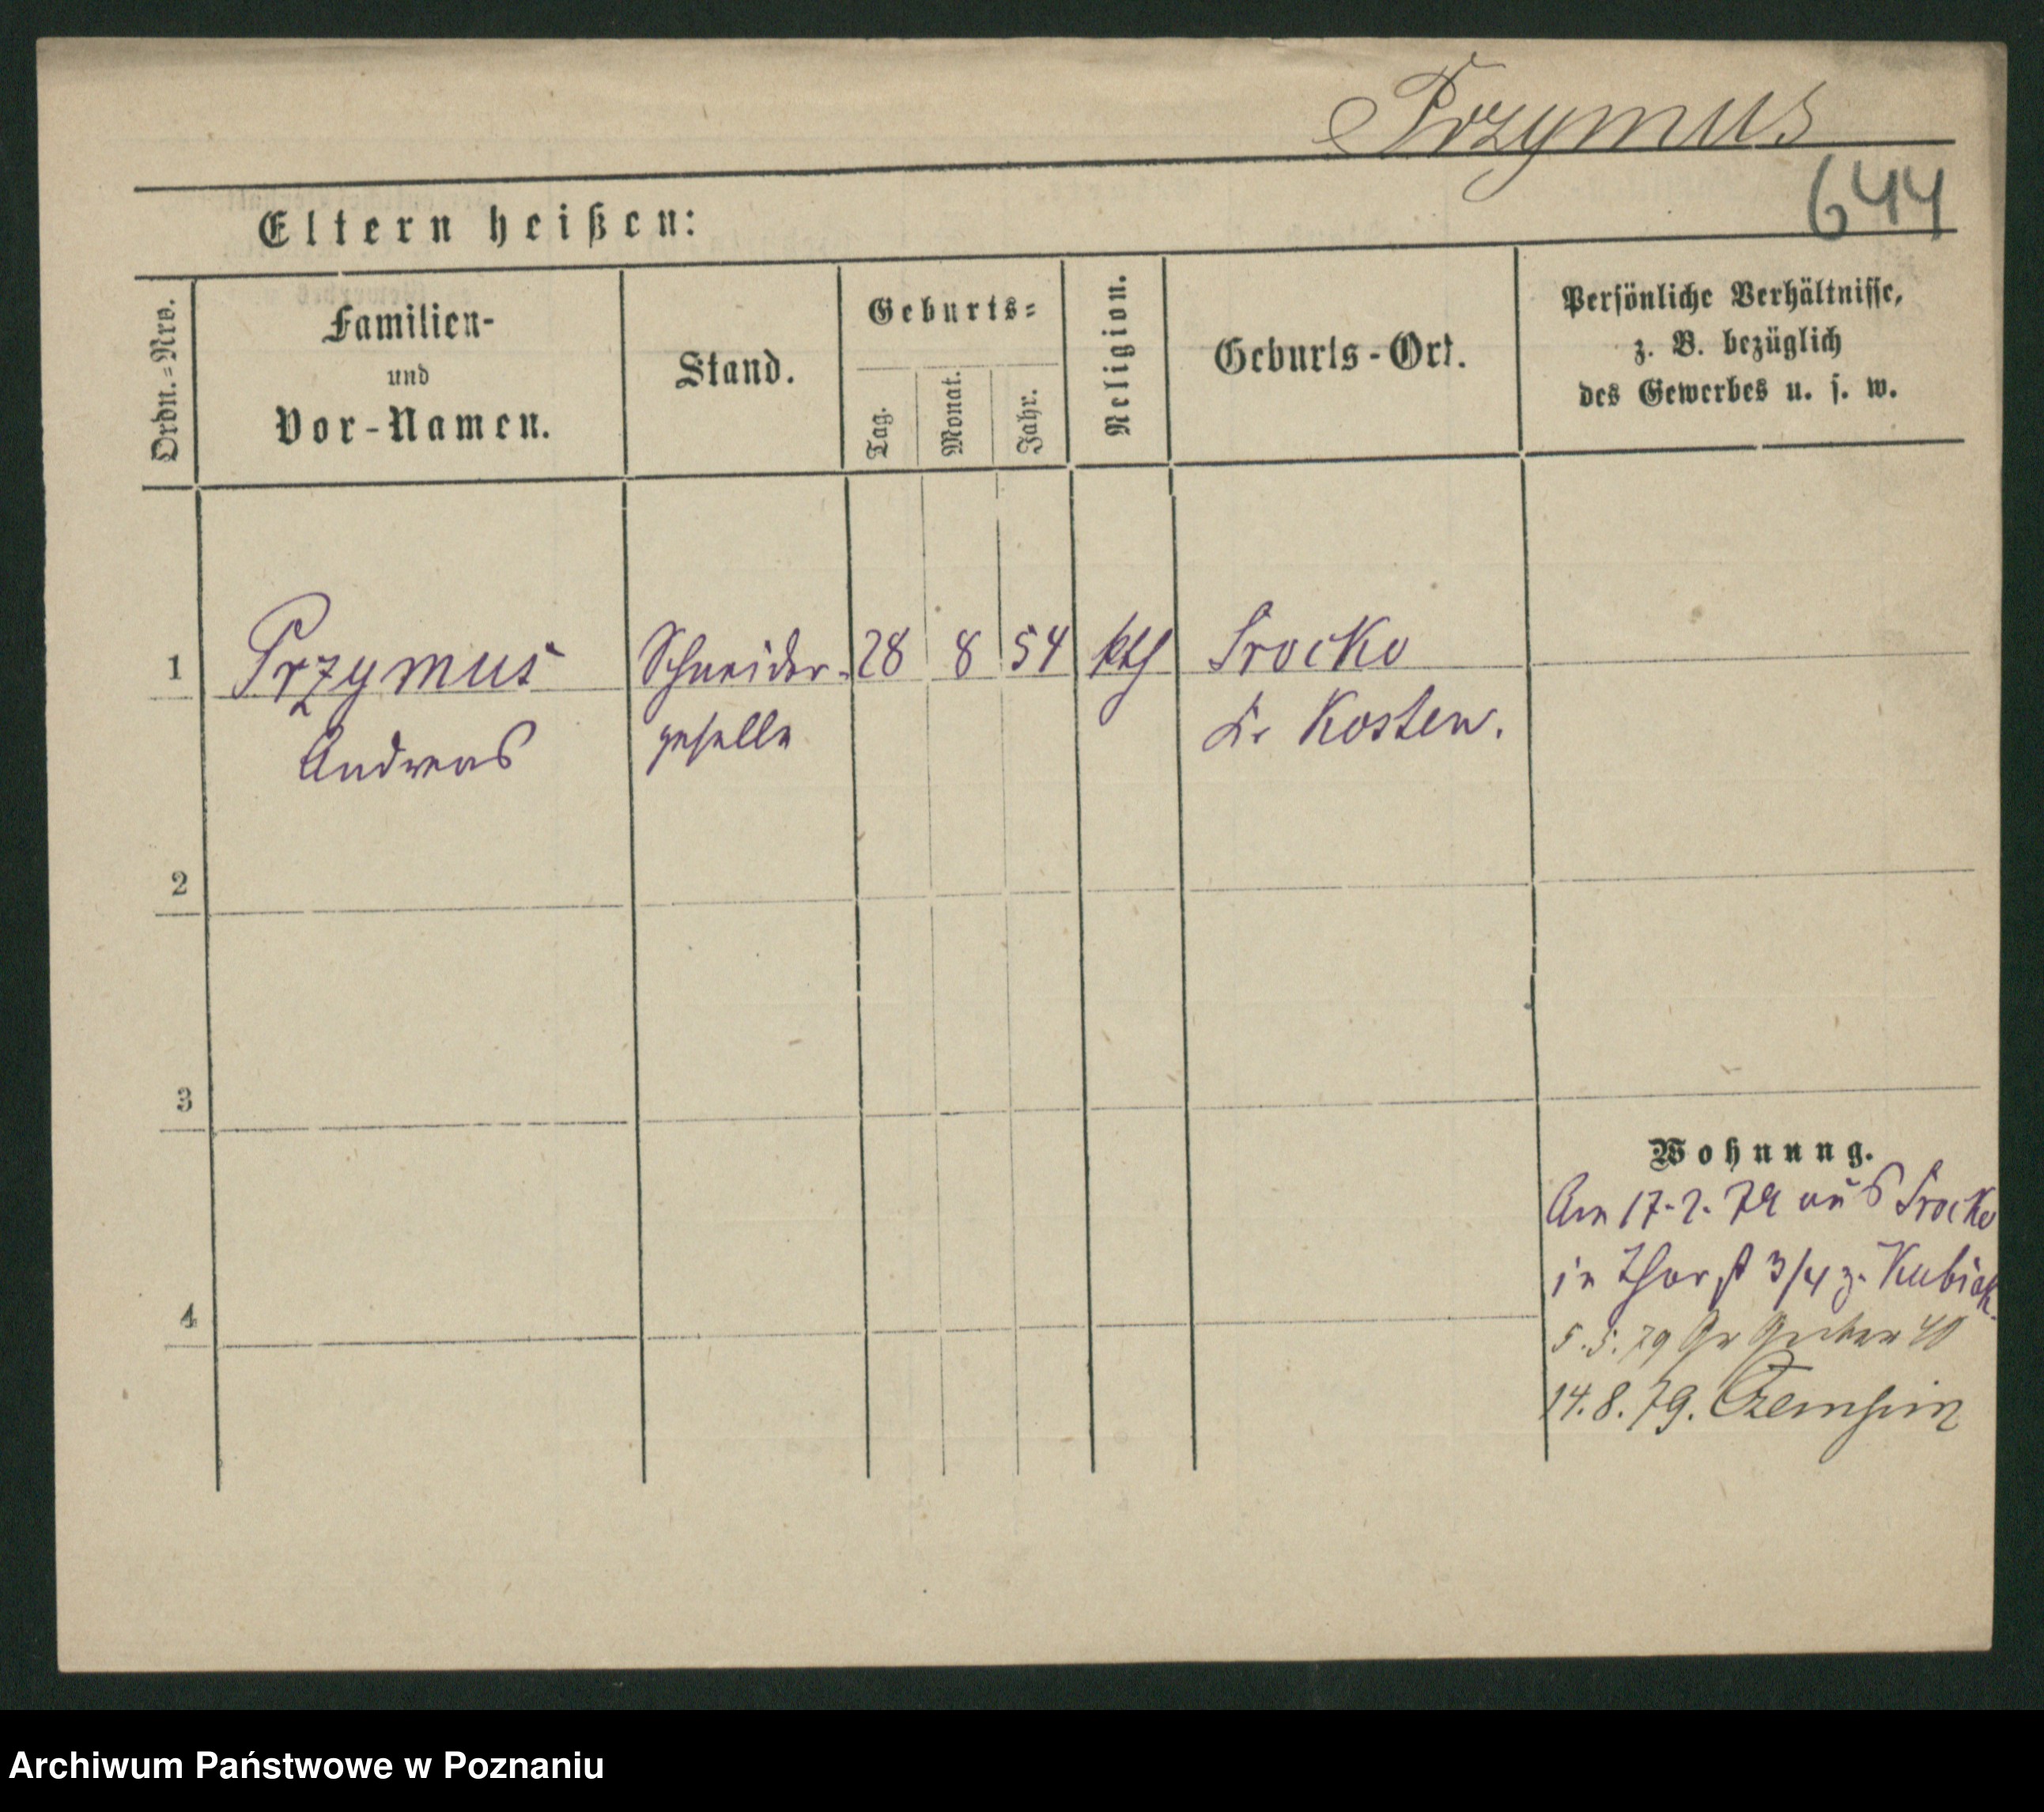 Przymus
644
Eltern heißen:
Ordn.=Nro.
Familien-
und
Vor-Namen.
Stand.
Geburts=
Tag.
Monat.
Jahr.
Religion.
Geburts-Ort.
Persönliche Verhältnisse,
z. B. bezüglich
des Gewerbes u. s. w.
1 Przymus Schneider- 28 8 54 kth Srocko
Andreas geselle Kr Kosten.
2
3
Wohnung.
Am 17.2.79 aus Srocko
in 3/4 z. Kubiak
4
5.5.79 Gr Gerber 40
14.8.79. Czempin
Archiwum Państwowe w Poznaniu